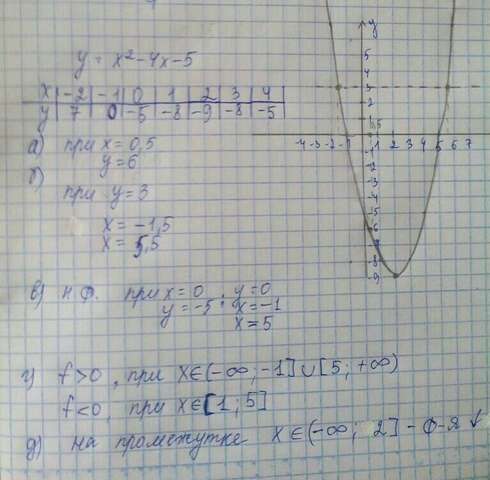 y = x²-4x-5
x | -2 | -1 | 0 | 1 | 2 | 3 | 4
y | 7 | 0 | -5 | -8 | -9 | -8 | -5
а) при x = 0,5
y = 6
б)
при y = 3
x = -1,5
x = 5,5
в) н.ф. при x = 0 ; y = 0
y = -5 ; x = -1
x = 5
г) f>0, при x∈(-∞; -1]∪[5; +∞)
f<0, при x∈[1; 5]
д) на промежутке x∈(-∞; 2] - ф-я ↓
y
5
4
3
2
1
0,5
-4 -3 -2 -1 1 2 3 4 5 6 7
-1
-2
-3
-4
-5
-6
-7
-8
-9